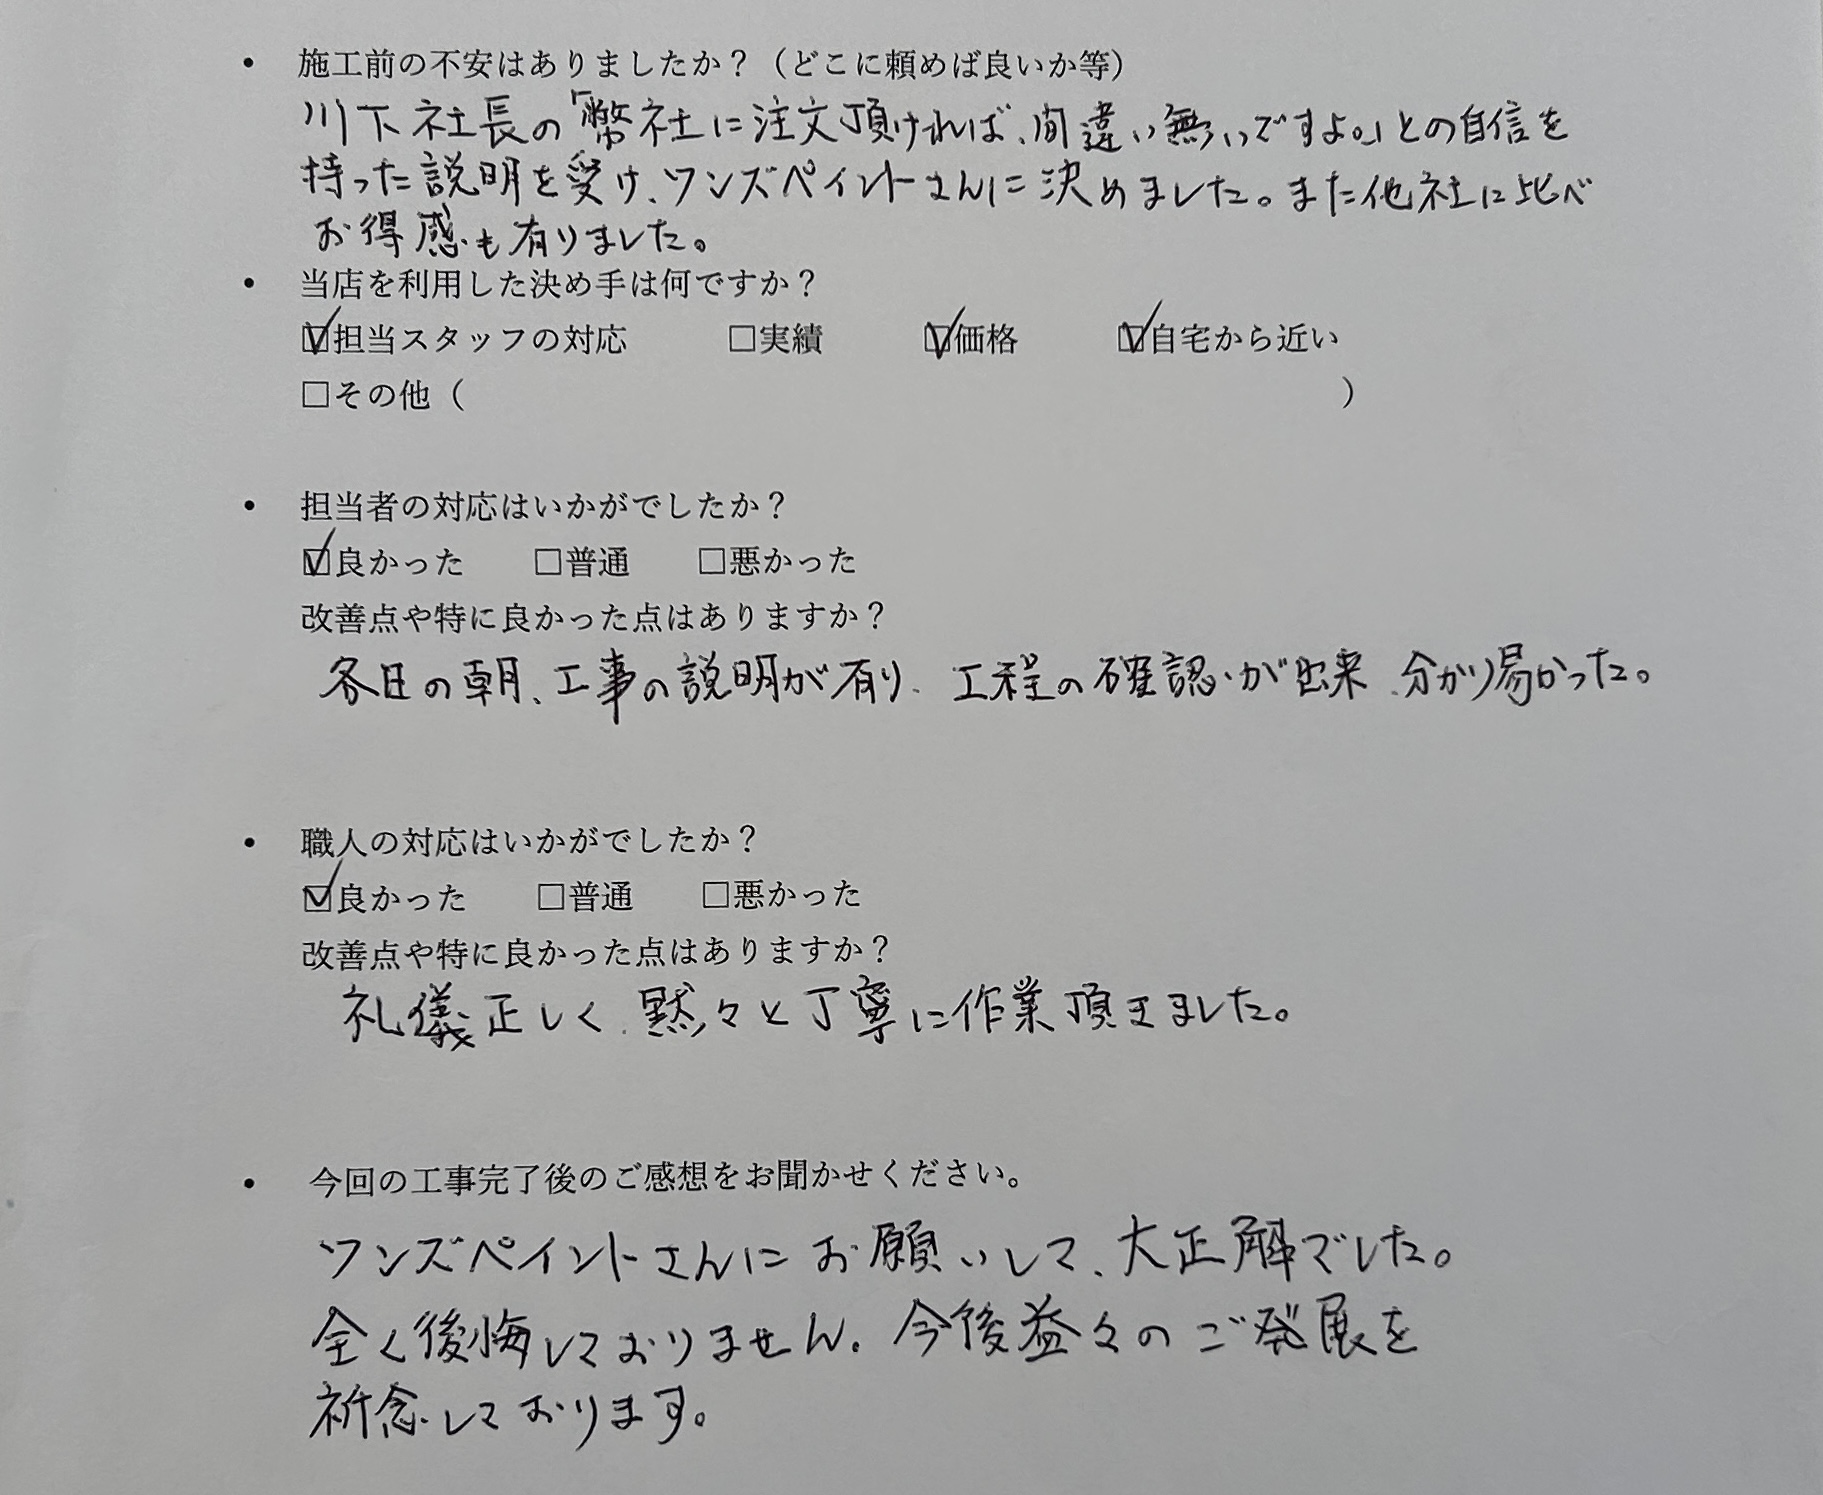 • 施工前の不安はありましたか？（どこに頼めば良いか等）
川下社長の「幣社に注文頂ければ、間違い無いですよ。」との自信を
持った説明を受け、ワンズペイントさんに決めました。また他社に比べ
お得感も有りました。
• 当店を利用した決め手は何ですか？
☑担当スタッフの対応 □実績 ☑価格 ☑自宅から近い
□その他（ ）
• 担当者の対応はいかがでしたか？
☑良かった □普通 □悪かった
改善点や特に良かった点はありますか？
各日の朝、工事の説明が有り、工程の確認が出来、分かり易かった。
• 職人の対応はいかがでしたか？
☑良かった □普通 □悪かった
改善点や特に良かった点はありますか？
礼儀正しく、黙々と丁寧に作業頂きました。
• 今回の工事完了後のご感想をお聞かせください。
ワンズペイントさんにお願いして、大正解でした。
全く後悔しておりません。今後益々のご発展を
祈念しております。